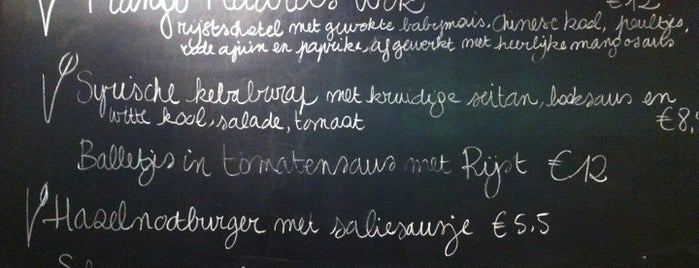 Mango Wok €12
rijstschotel met gewokte babymais, Chinese kool, peultjes,
rode ajuin en paprika, afgewerkt met heerlijke mangosaus
Syrische kebabwrap met kruidige seitan, looksaus en
witte kool, salade, tomaat €8,
Balletjes in tomatensaus met Rijst €12
Hazelnootburger met saliesausje €5,5